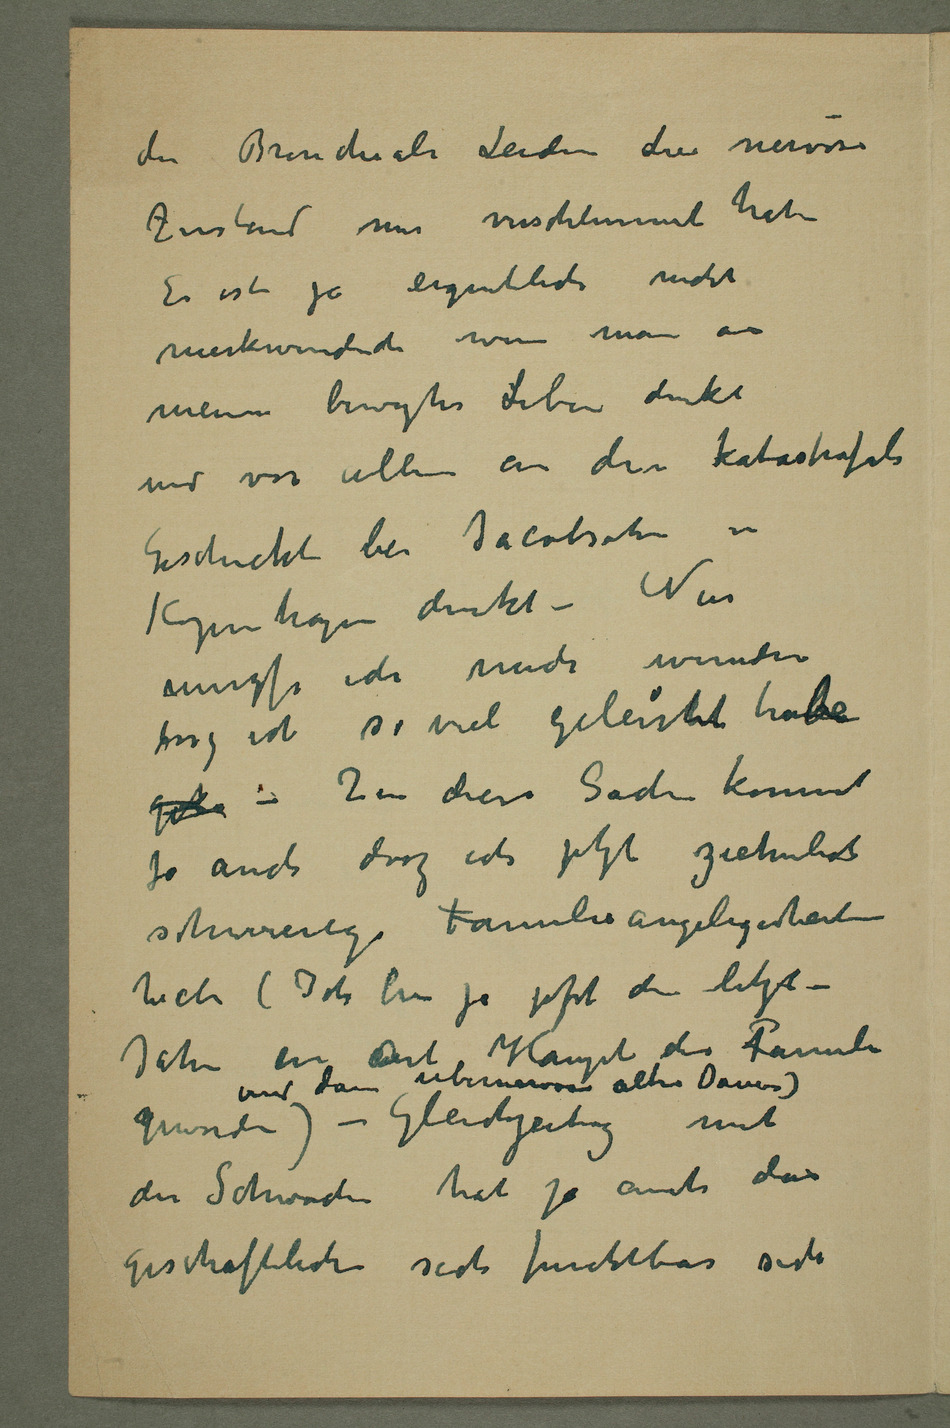 der Bronchiale Leiden die nervöse
Zustand nur verschlimmert habe
Es ist ja eigentlich nicht
merkwürdich wenn man an
meine bewegtes Leben denkt
und vor allem an den katastrofale
Geschickt bei Jacobsohn in
Kopenhagen denkt – Nur
muss ich mich wundern
das ich so viel geleistet habe
– Zu diese Sachen kommt
ja auch das ich jetzt ziehmlich
schwierige Familieangelegenheiten
habe (Ich bin ja jetzt die letzte
Jahre ein Art Haupt der Familie
und dann übernervöse alter Damer)
geworden) – Gleichzeitig mit
der Schwäche hat ja auch das
geschäftliche sich furchtbar sich